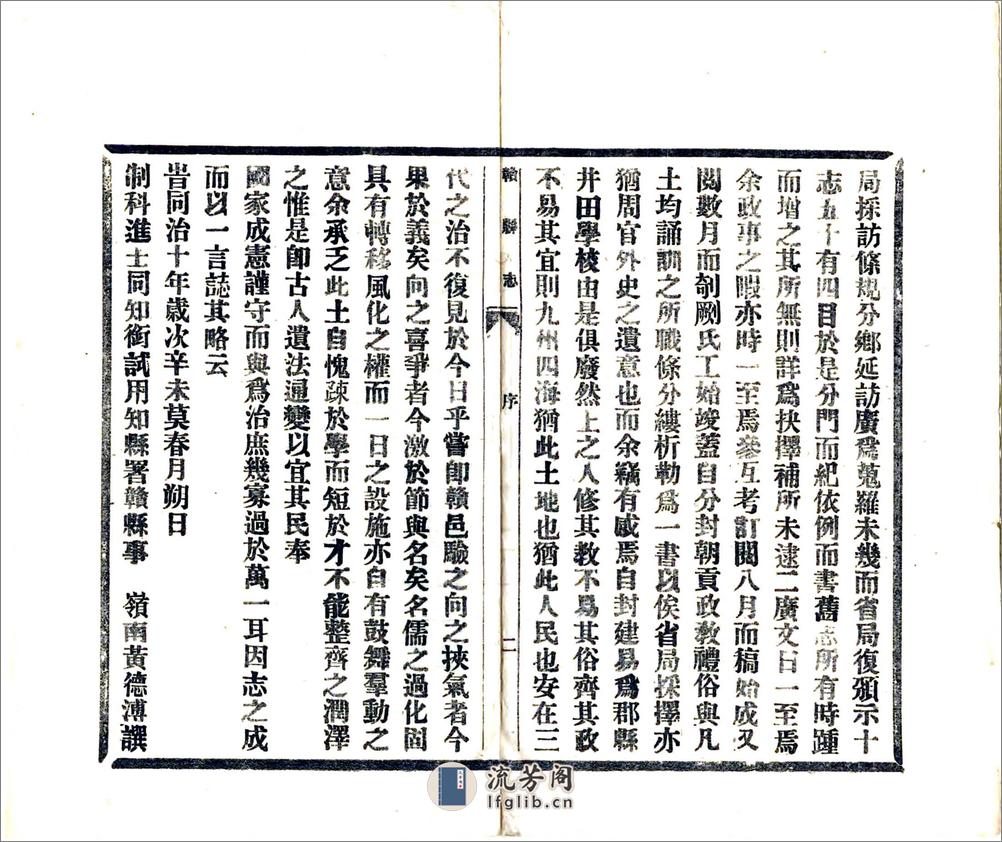 局採訪條規分鄉延訪廣爲蒐羅未幾而省局復頒示十
志五十有四目於是分門而紀依例而書舊志所有時踵
而增之其所無則詳爲抉擇補所未逮二廣文日一至焉
余政事之暇亦時一至焉參互考訂閱八月而稿始成又
閱數月而剞劂氏工始竣蓋自分封朝貢政教禮俗與凡
土均誦訓之所職條分縷析勒爲一書以俟省局採擇亦
猶周官外史之遺意也而余竊有感焉自封建易爲郡縣
井田學校由是俱廢然上之人修其教不易其俗齊其政
不易其宜則九州四海猶此土地也猶此人民也安在三
贛縣志 序 二
代之治不復見於今日乎嘗卽贛邑驗之向之挾氣者今
果於義矣向之喜爭者今激於節與名矣名儒之過化固
具有轉移風化之權而一日之設施亦自有鼓舞羣動之
意余承乏此土自愧疎於學而短於才不能整齊之潤澤
之惟是卽古人遺法通變以宜其民奉
國家成憲謹守而與爲治庶幾寡過於萬一耳因志之成
而以一言誌其略云
旹同治十年歲次辛未莫春月朔日
制科進士同知銜試用知縣署贛縣事 嶺南黃德溥譔
流芳阁
lfglib.cn